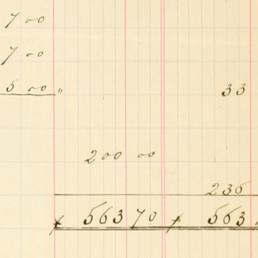 7 00
7 00
5 00 "
33
200 00
236
563 70 563